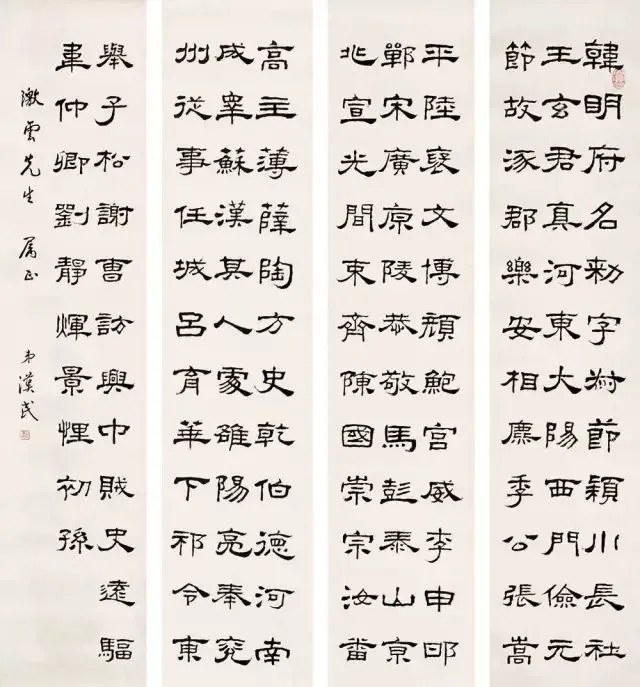 韓明府名勑字叔節穎川長社
王玄君真河東大陽西門儉元
節故涿郡樂安相廉季公張嵩
平陸襃文博頏鮑宮威李申
鄲宋廣原陵恭敬馬彭泰山京
兆宣光間束齊陳國崇宗汝番
高主薄薛陶方史乾伯德河南
成睪蘇漢其人處雒陽亮奉兖
州從事任城呂育華下邳令東
舉子松謝曹訪興中賊史遠驅
韋仲卿劉靜煇景悝初孫
激雲先生 屬正 弟漢民